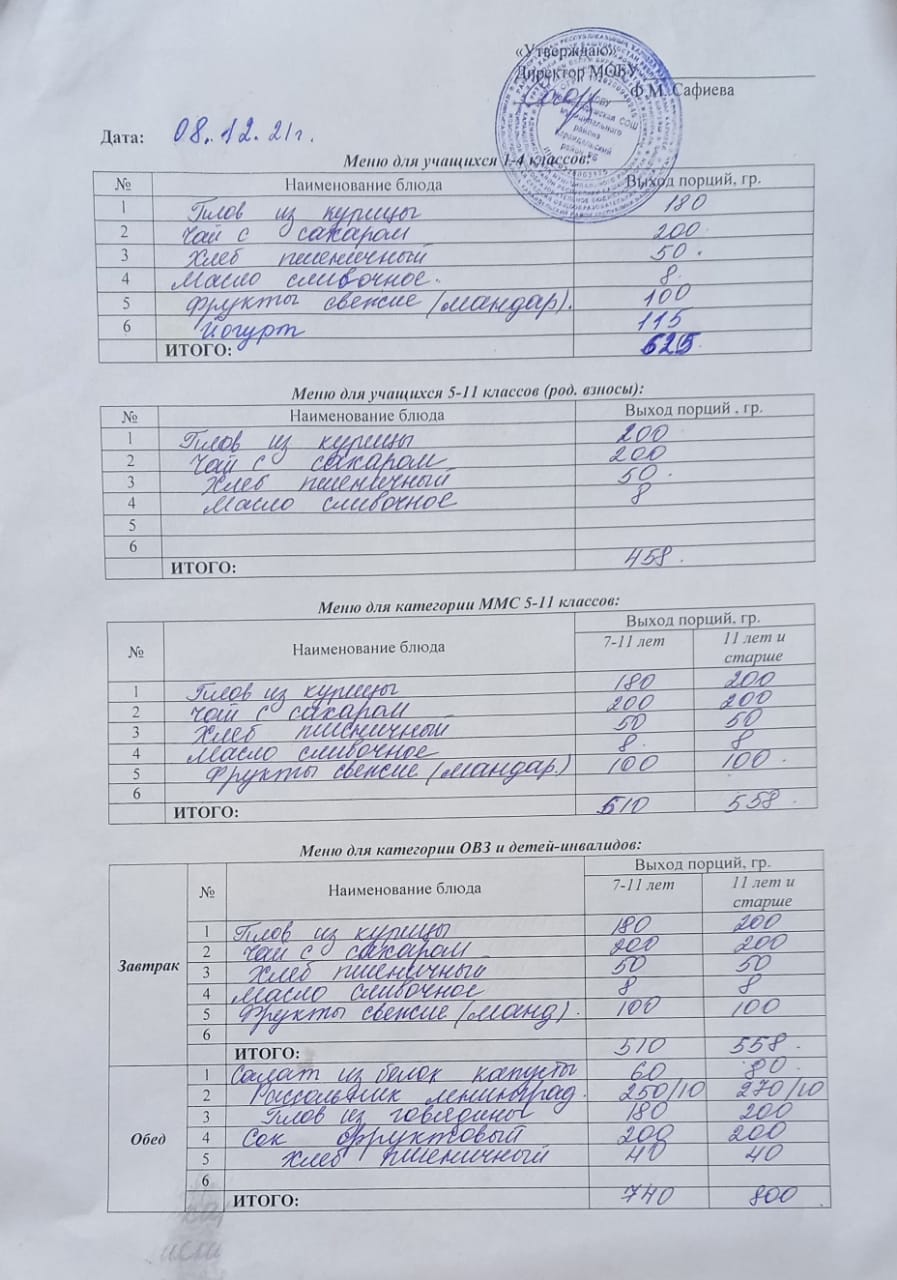 «Утверждаю»
Директор МОБУ
Ф.М. Сафиева
Дата: 08.12.21г.
Меню для учащихся 1-4 классов:
№ Наименование блюда Выход порций, гр.
1 Плов из курицы 180
2 Чай с сахаром 200
3 Хлеб пшеничный 50.
4 Масло сливочное. 8
5 Фрукты свежие (мандар). 100
6 Йогурт 115
ИТОГО: 625
Меню для учащихся 5-11 классов (род. взносы):
№ Наименование блюда Выход порций , гр.
1 Плов из курицы 200
2 Чай с сахаром 200
3 Хлеб пшеничный 50.
4 Масло сливочное 8
5
6
ИТОГО: 458.
Меню для категории ММС 5-11 классов:
№ Наименование блюда Выход порций, гр.
7-11 лет 11 лет и старше
1 Плов из курицы 180 200
2 Чай с сахаром 200 200
3 Хлеб пшеничный 50 50
4 Масло сливочное 8. 8
5 Фрукты свежие (мандар.) 100 100.
6
ИТОГО: 510 558.
Меню для категории ОВЗ и детей-инвалидов:
№ Наименование блюда Выход порций, гр.
7-11 лет 11 лет и старше
Завтрак
1 Плов из курицы 180 200
2 Чай с сахаром 200 200
3 Хлеб пшеничный 50 50
4 Масло сливочное 8 8
5 Фрукты свежие (манд). 100 100
6
ИТОГО: 510 558.
Обед
1 Салат из белок капусты 60 80.
2 Рассольник ленинград. 250/10 270/10
3 Плов из говядины 180 200
4 Сок фруктовый 200 200
5 Хлеб пшеничный 40 40
6
ИТОГО: 740 800